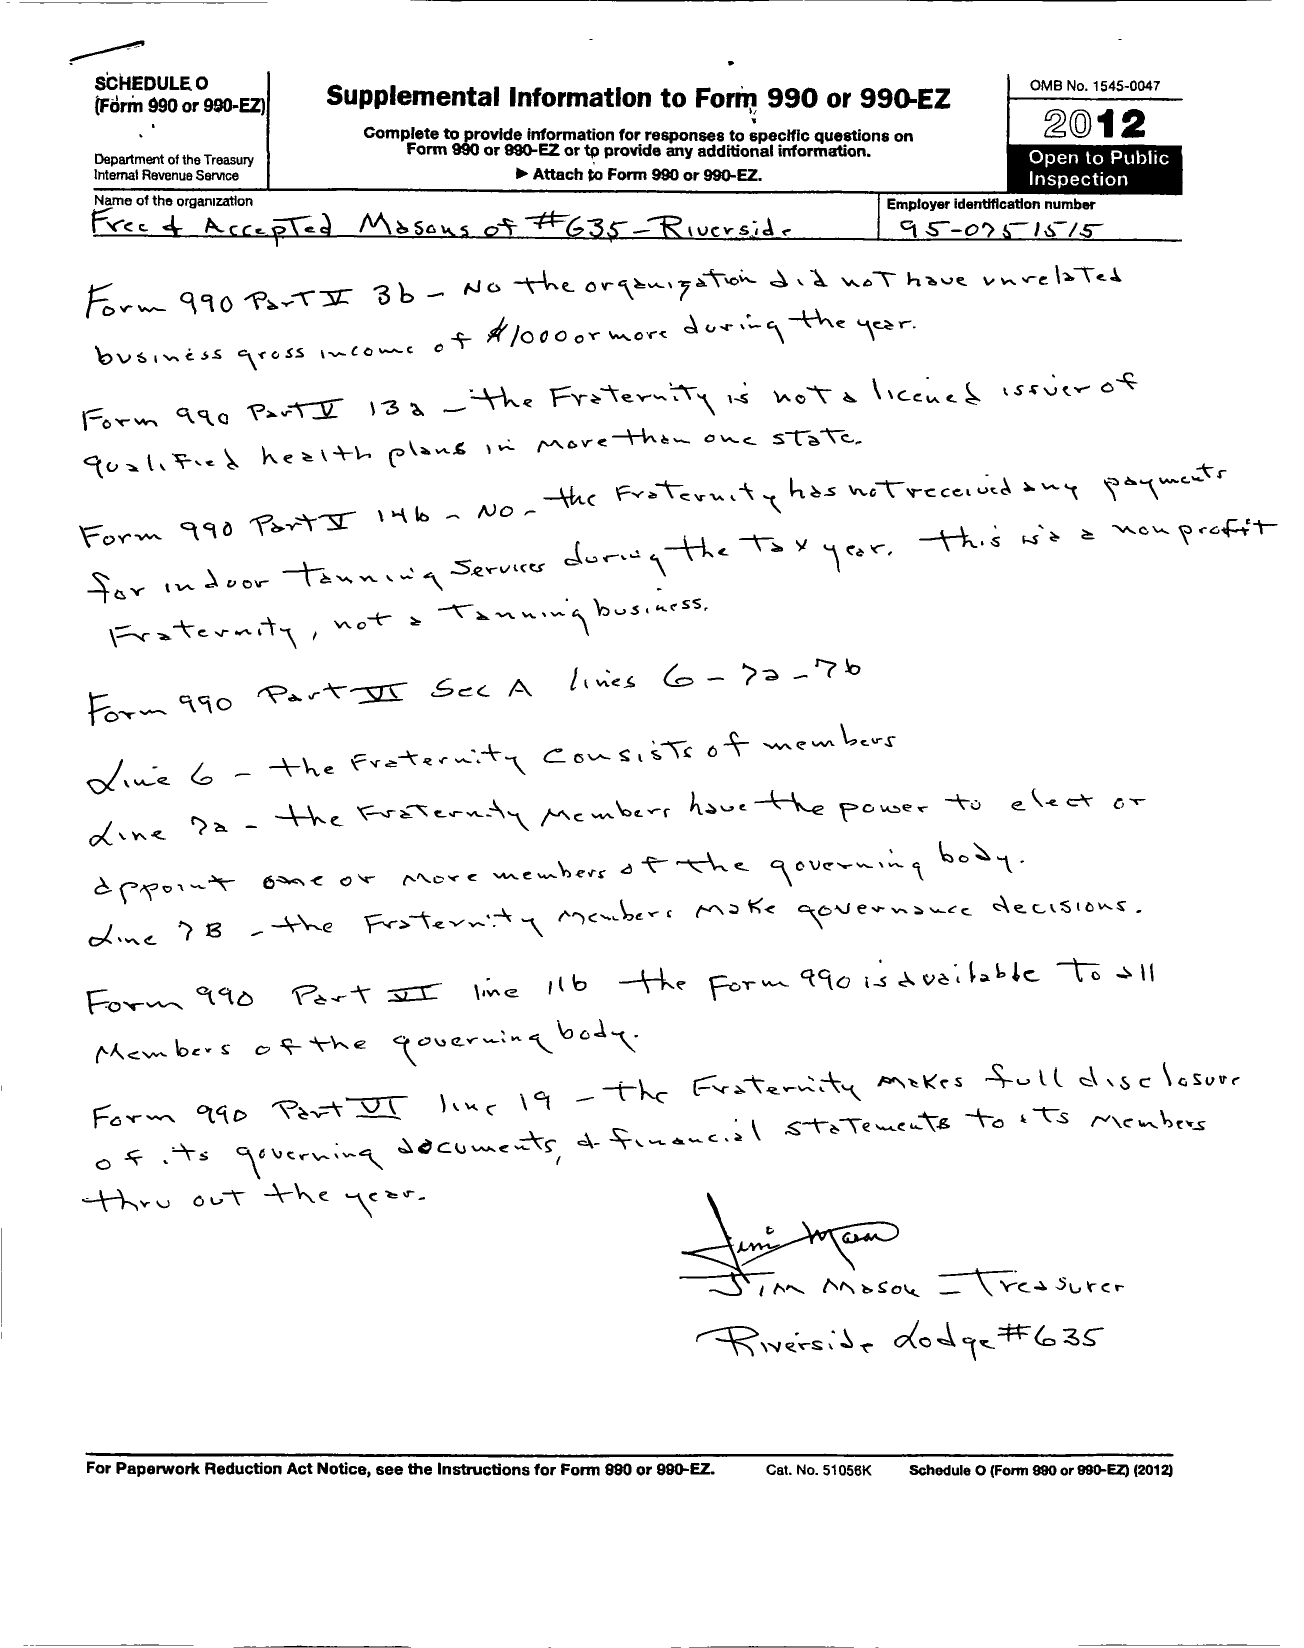 SCHEDULE O
(Form 990 or 990-EZ)
Department of the Treasury
Internal Revenue Service
Supplemental Information to Form 990 or 990-EZ
Complete to provide information for responses to specific questions on
Form 990 or 990-EZ or to provide any additional information.
▶ Attach to Form 990 or 990-EZ.
OMB No. 1545-0047
2012
Open to Public
Inspection
Name of the organization
Free & Accepted Masons of #635-Riverside
Employer identification number
95-0751515
Form 990 Part V 3b - No the organization did not have unrelated
business gross income of $1000 or more during the year.
Form 990 Part V 13a - the Fraternity is not a licened issuer of
qualified health plans in more than one state.
Form 990 Part V 14b - No - the Fraternity has not received any payments
for indoor Tanning Services during the Tax year. This is a non profit
Fraternity, not a Tanning business.
Form 990 Part VI Sec A lines 6 - 7a - 7b
Line 6 - the Fraternity consists of members
Line 7a - the Fraternity Members have the power to elect or
appoint one or more members of the governing body.
Line 7B - the Fraternity Members make governance decisions.
Form 990 Part VI line 11b the Form 990 is available to all
Members of the governing body.
Form 990 Part VI line 19 - the Fraternity makes full disclosure
of its governing documents, & financial statements to its members
thru out the year.
Jim Mason
Jim Mason - Treasurer
Riverside Lodge #635
For Paperwork Reduction Act Notice, see the Instructions for Form 990 or 990-EZ.
Cat. No. 51056K
Schedule O (Form 990 or 990-EZ) (2012)